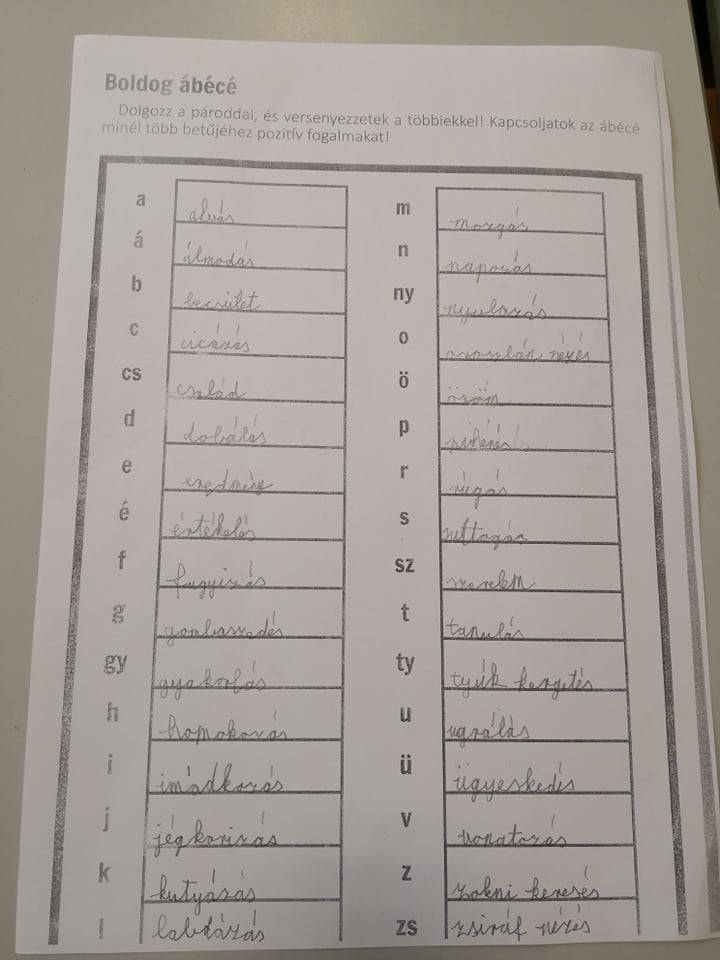 Boldog ábécé
Dolgozz a pároddal, és versenyezzetek a többiekkel! Kapcsoljatok az ábécé
minél több betűjéhez pozitív fogalmakat!
a alvás
á álmodás
b becsület
c cicázás
cs család
d dobálás
e eredmény
é értékelés
f fagyizás
g gombaszedés
gy gyakorlás
h homokozás
i imádkozás
j jégkorizás
k kutyázás
l labdázás
m mozgás
n napozás
ny nyulazás
o oroszlán nézés
ö öröm
p pihenés
r rúgás
s suttogás
sz szerelem
t tanulás
ty tyúk kergetés
u ugrálás
ü ügyeskedés
v vonatozás
z zokni keresés
zs zsiráf nézés